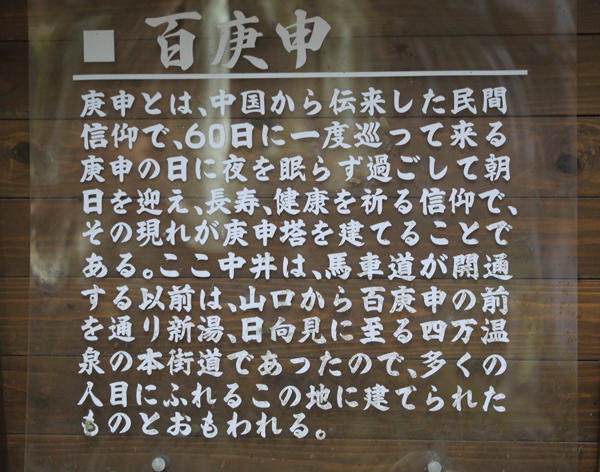 ■ 百庚申
庚申とは、中国から伝来した民間
信仰で、60日に一度巡って来る
庚申の日に夜を眠らず過ごして朝
日を迎え、長寿、健康を祈る信仰で、
その現れが庚申塔を建てることで
ある。ここ中井は、馬車道が開通
する以前は、山口から百庚申の前
を通り新湯、日向見に至る四万温
泉の本街道であったので、多くの
人目にふれるこの地に建てられた
ものとおもわれる。